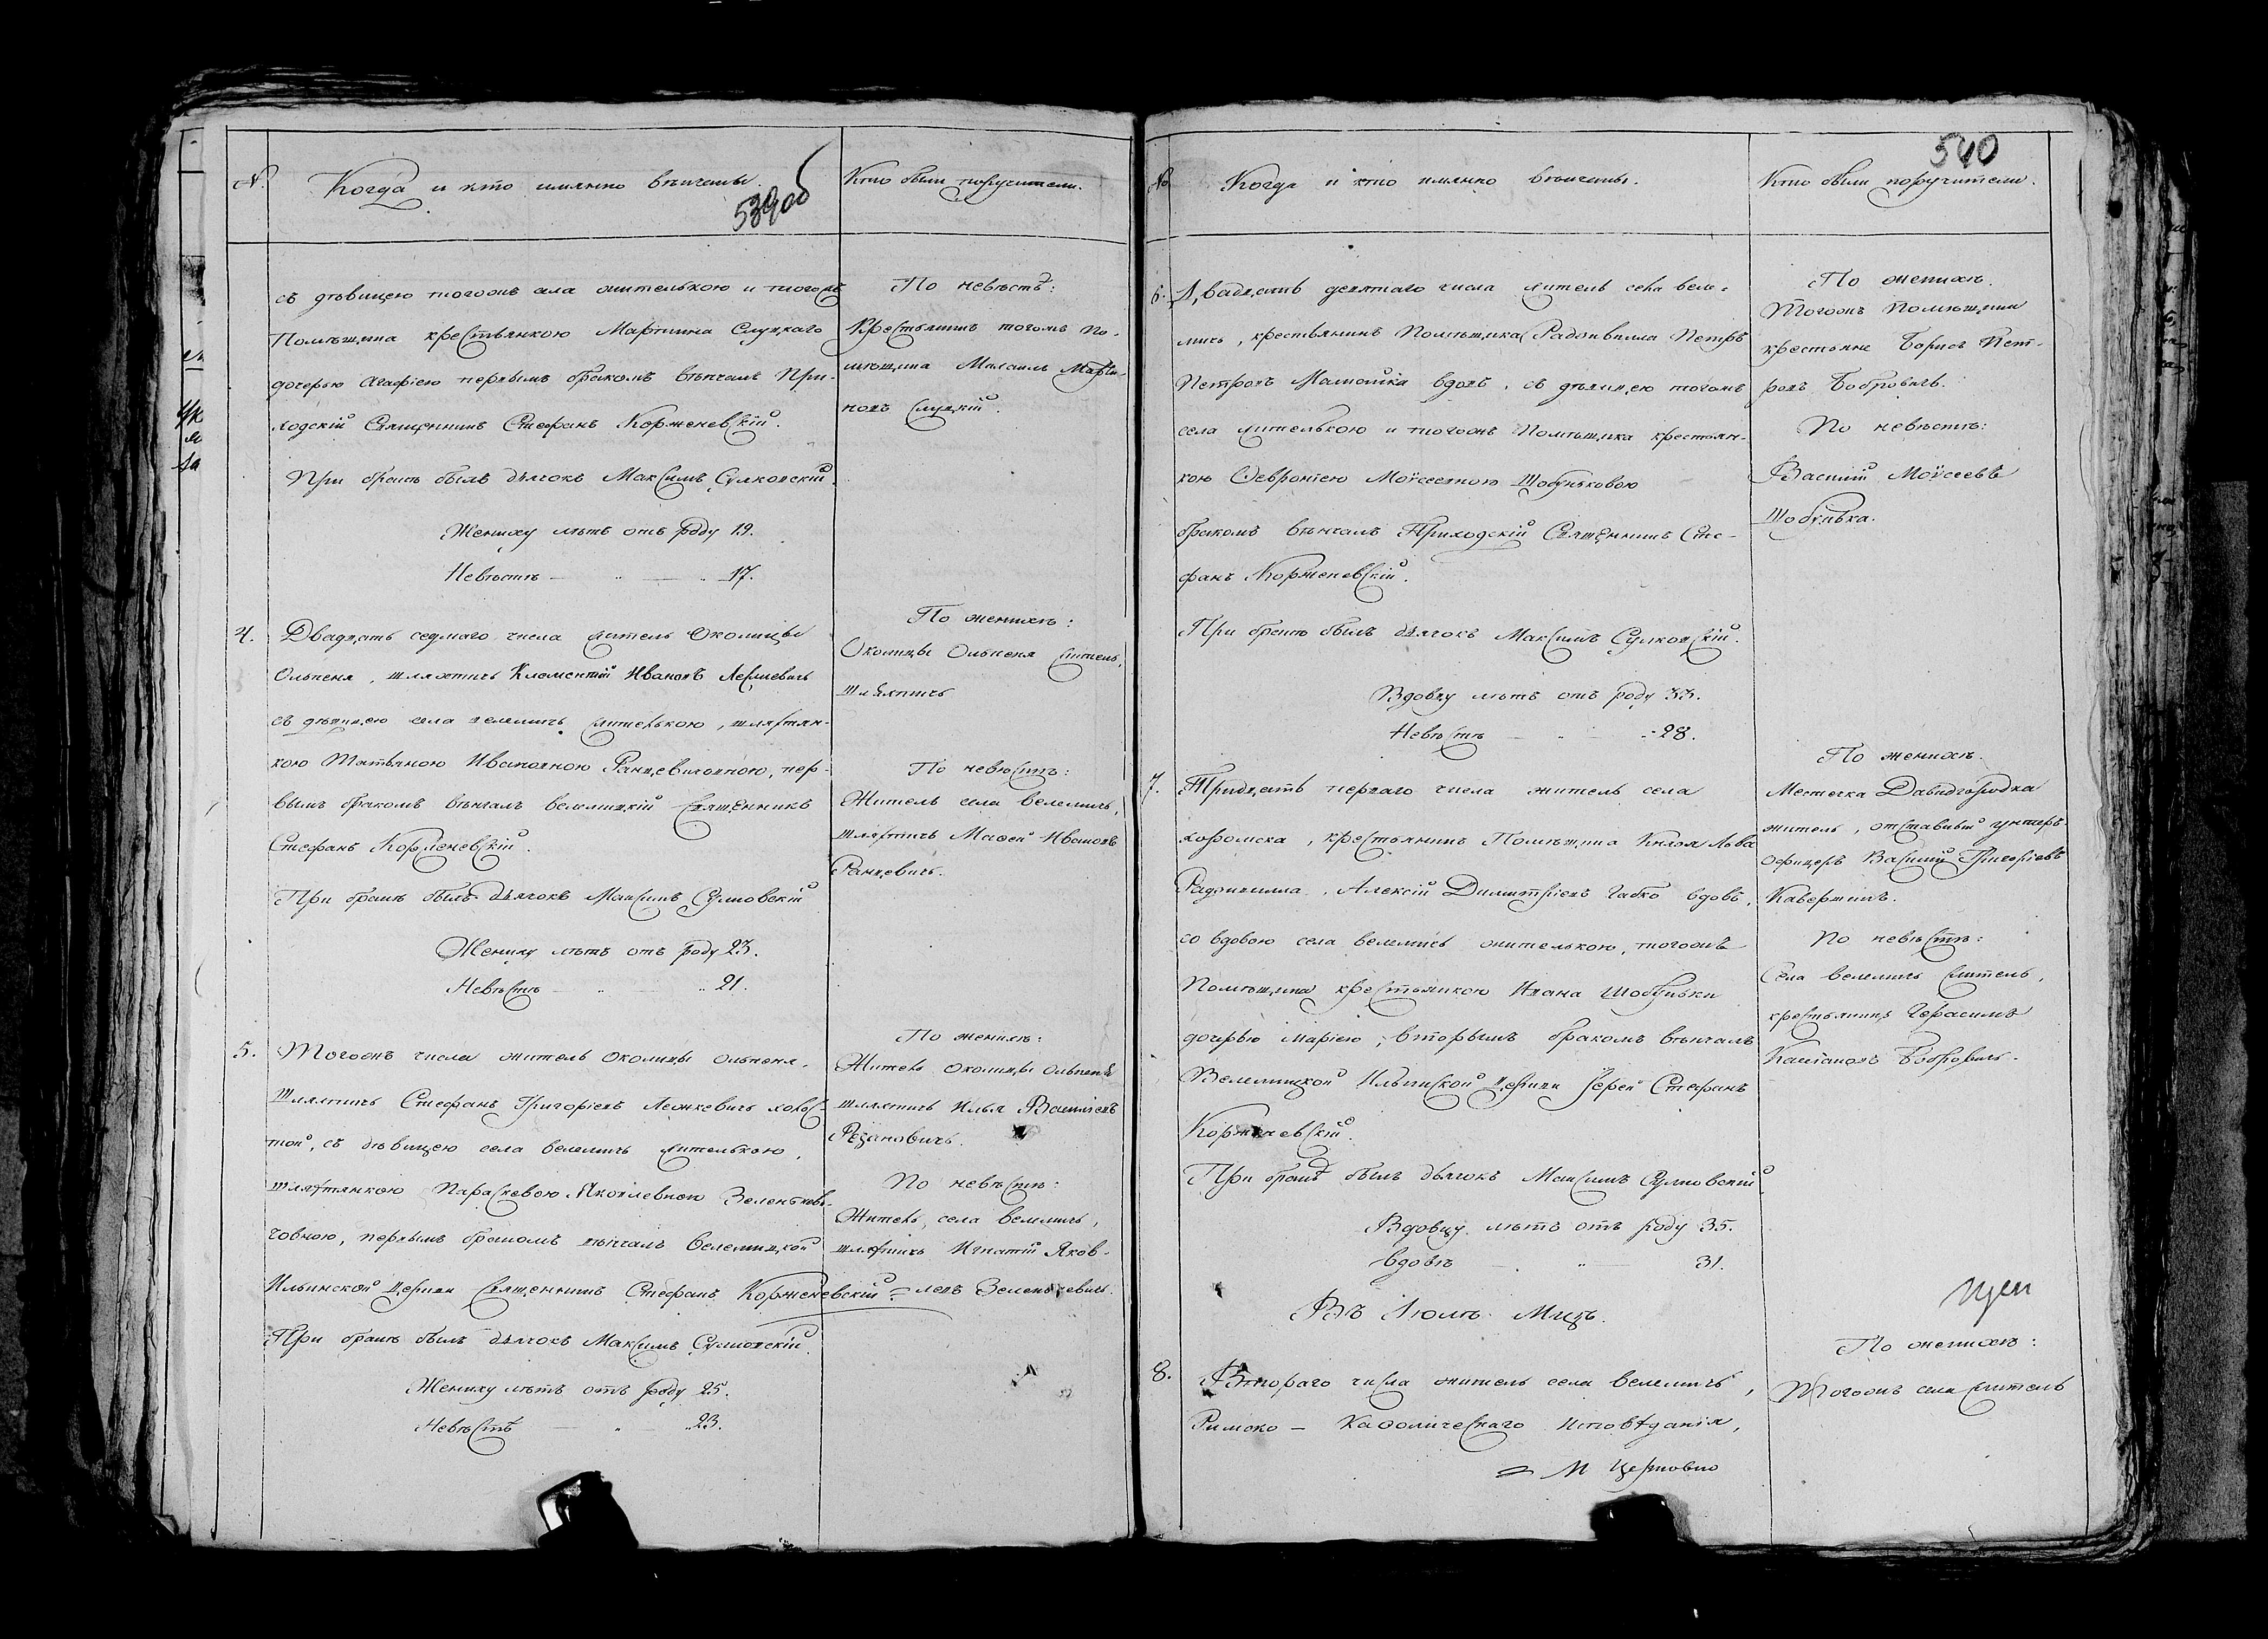 №.
Когда и кто имянно вѣнчаны.
539об
Кто были поручители.
съ дѣвицею тогожъ села жителькою и тогожъ
Помѣщика крестьянкою Мартина Слуцкаго
дочерью Агафіею первымъ бракомъ вѣнчалъ При-
ходскій Священникъ Стефанъ Корженевскій.
При бракѣ былъ дьячокъ Максимъ Сулковскій.
Жениху лѣтъ отъ роду 19.
Невѣстѣ — „ — „ 17.
По невѣстѣ:
Крестьянинъ тогожъ По-
мѣщика Михаилъ Марти-
новъ Слуцкій.
4.
Двадцать седмаго числа житель Околицы
Ольпеня, шляхтичъ Клементій Ивановъ
съ дѣвицею села велемичь жителькою, шляхтян-
кою Татьяною Ивановною Ранцевичовною, пер-
вымъ бракомъ вѣнчалъ велемицкій Священникъ
Стефанъ Корженевскій.
При бракѣ былъ дьячокъ Максимъ Сулковскій
Жениху лѣтъ отъ роду 23.
Невѣстѣ — „ — „ 21.
По женихѣ:
Околицы Ольпеня житель,
шляхтичъ
По невѣстѣ:
Житель села велемичь,
шляхтичъ Матѳей Ивановъ
Ранцевичъ.
5.
Тогожъ числа житель Околицы ольпеня,
Шляхтичъ Стефанъ Григоріевъ Лемкевичъ холос-
той, съ дѣвицею села велемичь жителькою,
шляхтянкою Параскевою Яковлевною Зеленкеви-
човною, первымъ бракомъ вѣнчалъ велемицкой
Ильинской церкви Священникъ Стефанъ Корженевскій
При бракѣ былъ дьячокъ Максимъ Сулковскій.
Жениху лѣтъ отъ роду 25.
Невѣстѣ — „ — „ 23.
По женихѣ:
Житель околицы ольпеня
шляхтичъ Илья Васильевъ
Рѣзановичъ.
По невѣстѣ:
Житель села велемичь,
шляхтичъ Игнатій Яков-
левъ Зеленкевичъ.
№
Когда и кто имянно вѣнчаны.
540
Кто были поручители.
6.
Двадцать девятаго числа житель села веле-
мичь, крестьянинъ Помѣщика Радзивилла Петръ
Петровъ Малюшка вдовъ, съ дѣвицею тогожъ
села жителькою и тогожъ Помѣщика крестьян-
кою Февроніею Моѵсеевною Шобунковою
бракомъ вѣнчалъ Приходскій Священникъ Сте-
фанъ Корженевскій.
При бракѣ былъ дьячокъ Максимъ Сулковскій.
Вдовцу лѣтъ отъ роду 33.
Невѣстѣ — „ — 28.
По женихѣ.
Тогожъ Помѣщика
крестьяне Борисъ Пет-
ровъ Бобровичъ.
По невѣстѣ:
Василій Моѵсеевъ
Шобунька.
7.
Тридцать перваго числа житель села
хоромска, крестьянинъ Помѣщика Князя Льва
Радзивилла, Алексій Димитріевъ Габко вдовъ,
со вдовою села велемичь жителькою, тогожъ
Помѣщика крестьянкою Ивана Шобуньки
дочерью Маріею, вторымъ бракомъ вѣнчалъ
Велемицкой Ильинской церкви Іерей Стефанъ
Корженевскій.
При бракѣ былъ дьячокъ Максимъ Сулковскій.
Вдовцу лѣтъ отъ роду 35.
Вдовѣ — „ — 31.
По женихѣ.
Местечка Давидгородка
житель, отставный унтеръ-
офицеръ Василій Григоріевъ
Каверзинъ.
По невѣстѣ:
Села велемичь житель,
крестьянинъ Герасимъ
Бобровичъ.
Въ Іюлѣ Мцѣ.
8.
Втораго числа житель села велемичь,
Римско — Каѳолическаго исповѣданія,
По женихѣ:
Тогожъ села житель